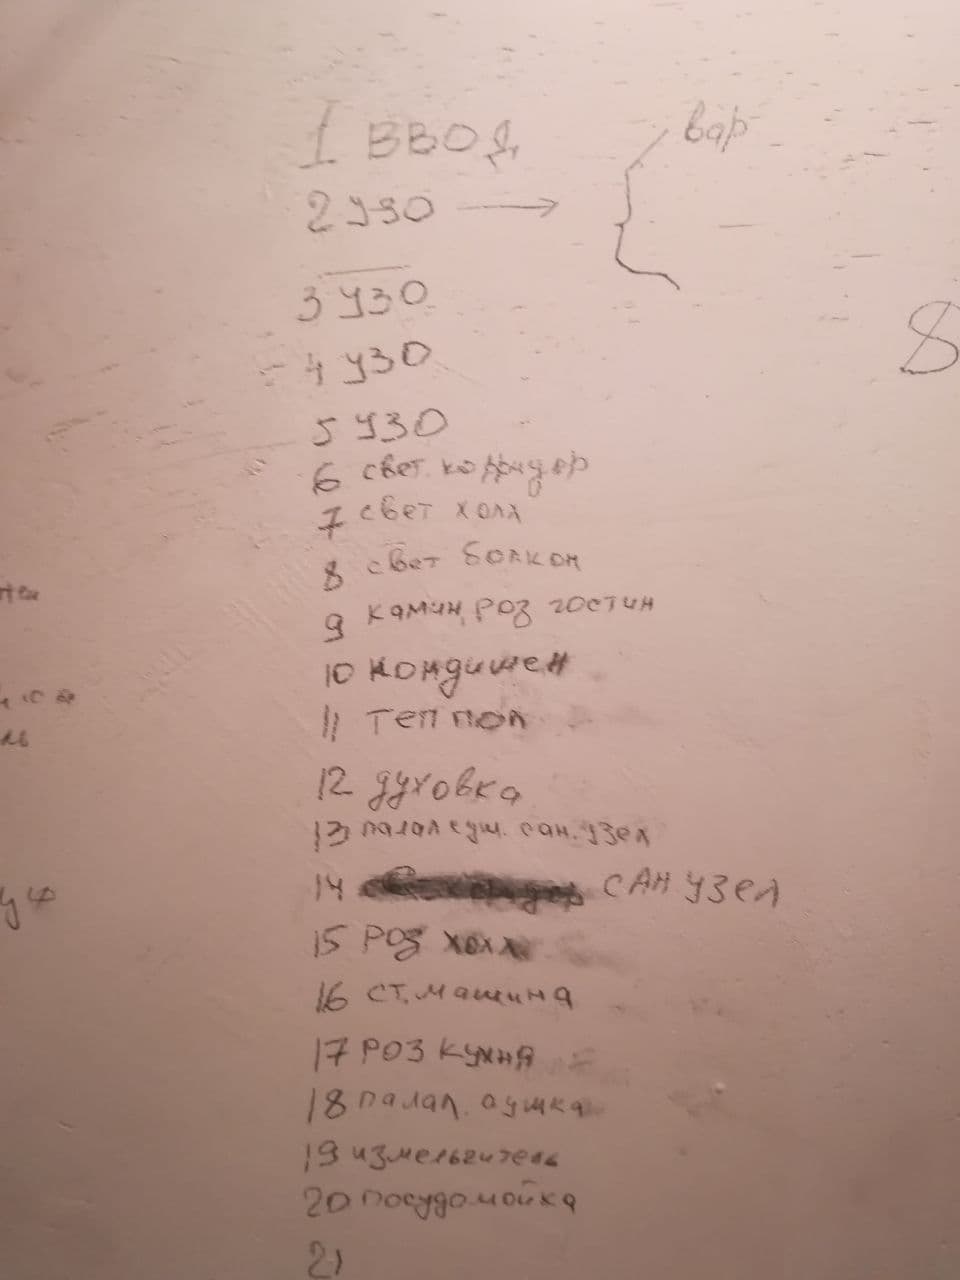 1 ВВОД
вар
2 УЗО →
3 УЗО
4 УЗО
5 УЗО
8
6 свет. корридор
7 свет холл
8 свет болкон
9 камин, роз гостин
10 кондишен
11 теп пол
12 духовка
13 палал суш. сан. узел
14 САН УЗЕЛ
15 РОЗ холл
16 ст. машина
17 РОЗ кухня
18 палал. сушка
19 измельчитель
20 посудомойка
21